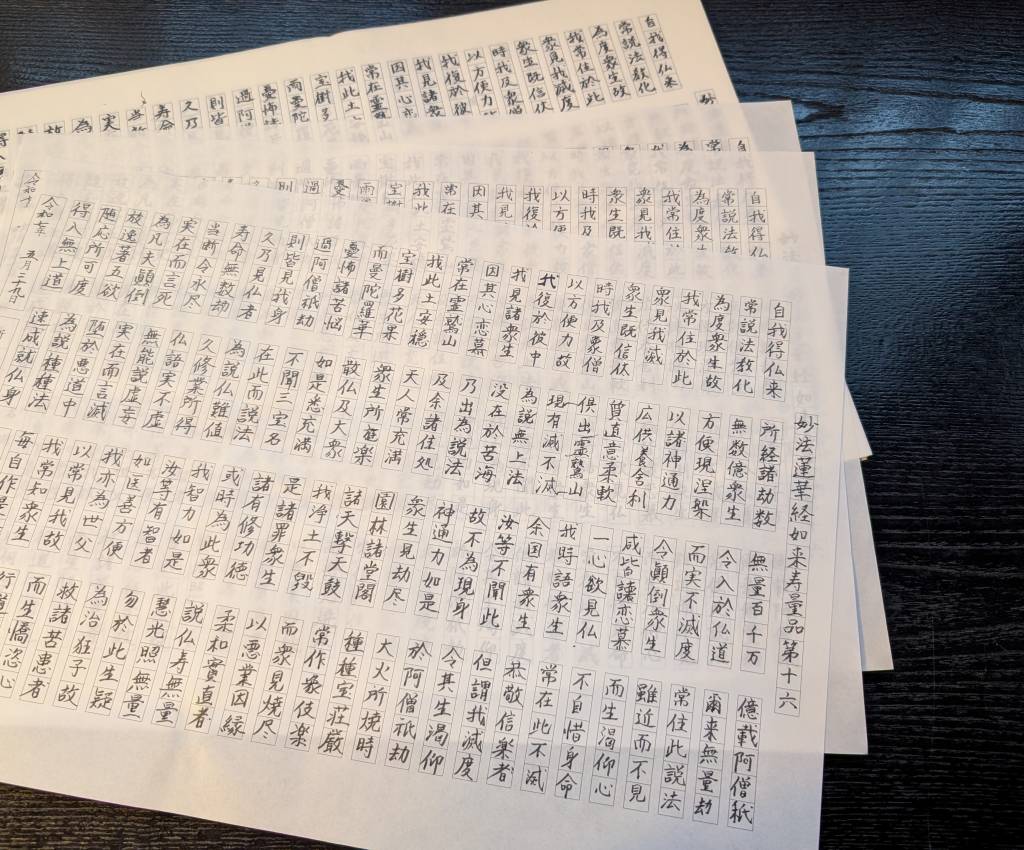 妙法蓮華経如来寿量品第十六
自我得仏来 所経諸劫数 無量百千万 億載阿僧祇
常説法教化 無数億衆生 令入於仏道 爾来無量劫
為度衆生故 方便現涅槃 而実不滅度 常住此説法
我常住於此 以諸神通力 令顛倒衆生 雖近而不見
衆見我滅 広供養舎利 咸皆懐恋慕 而生渇仰心
衆生既信伏 質直意柔軟 一心欲見仏 不自惜身命
時我及衆僧 倶出霊鷲山 我時語衆生 常在此不滅
以方便力故 現有滅不滅 余国有衆生 恭敬信楽者
我復於彼中 為説無上法 汝等不聞此 但謂我滅度
我見諸衆生 没在於苦海 故不為現身 令其生渇仰
因其心恋慕 乃出為説法 神通力如是 於阿僧祇劫
常在霊鷲山 及余諸住処 衆生見劫尽 大火所焼時
我此土安穏 天人常充満 園林諸堂閣 種種宝荘厳
宝樹多花果 衆生所遊楽 諸天撃天鼓 常作衆伎楽
雨曼陀羅華 散仏及大衆 我浄土不毀 而衆見焼尽
憂怖諸苦悩 如是悉充満 是諸罪衆生 以悪業因縁
過阿僧祇劫 不聞三宝名 諸有修功徳 柔和質直者
則皆見我身 在此而説法 或時為此衆 説仏寿無量
久乃見仏者 為説仏難値 我智力如是 慧光照無量
寿命無数劫 久修業所得 汝等有智者 勿於此生疑
当断令永尽 仏語実不虚 如医善方便 為治狂子故
実在而言死 無能説虚妄 我亦為世父 救諸苦患者
為凡夫顛倒 実在而言滅 以常見我故 而生憍恣心
放逸著五欲 堕於悪道中 我常知衆生 行道
随応所可度 為説種種法 毎自作是
得入無上道 速成就仏身
令和七年 五月二十九日
自我得仏
常説法教
為度衆生
我常住於
衆見我
衆生既
時我及
以方便
我復於
我見
因其
常在
我此
宝樹
雨
憂
過
則
自我
常
為
自我得仏来
常説法教化
為度衆生故
我常住於此
衆見我滅度
衆生既信伏
時我及衆僧
以方便力
我復於彼
我見諸衆
因其心
常在霊
我此土
宝樹多
雨曼陀
憂怖
過阿
則皆
久乃
寿命
当
実
為
放